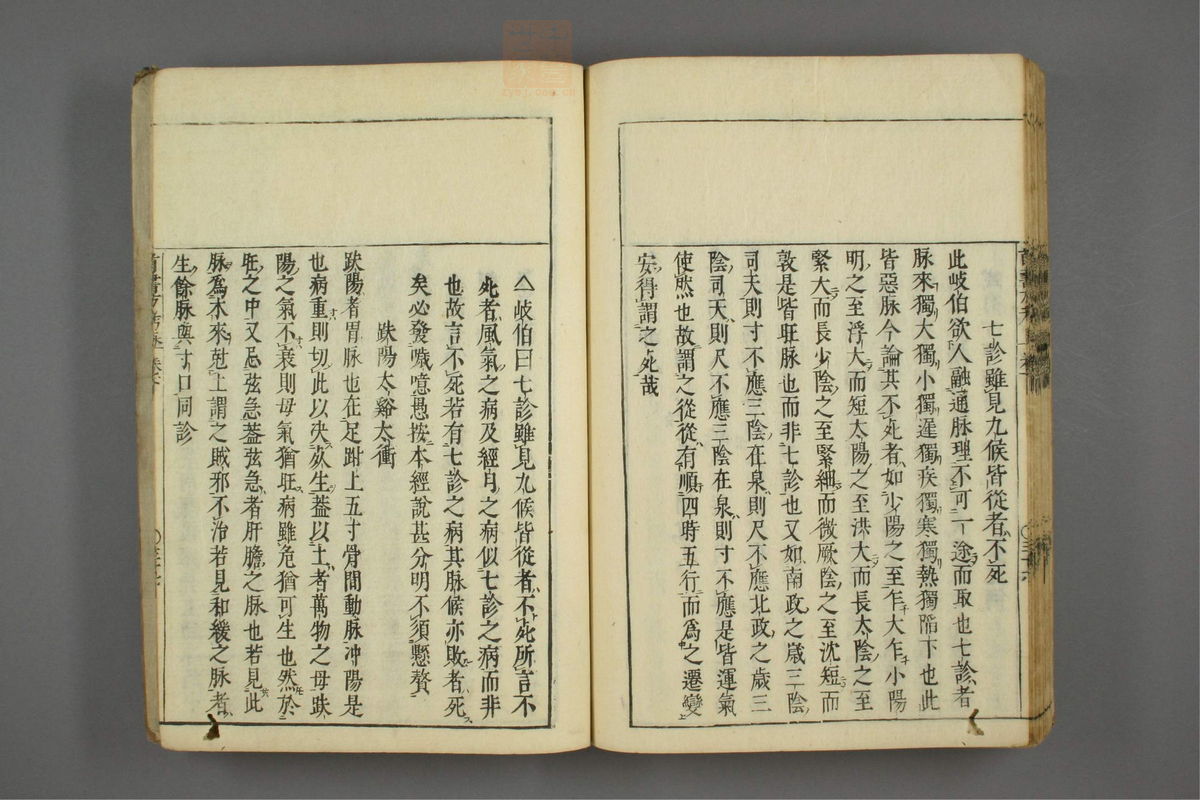 七診雖見九候皆從者不死
此岐伯欲人融通脉理不可一途而取也七診者
脉來獨大獨小獨遲獨疾獨寒獨熱獨陷下也此
皆惡脉今論其不死者如少陽之至乍大乍小陽
明之至浮大而短太陽之至洪大而長太陰之至
緊大而長少陰之至緊細而微厥陰之至沈短而
敦是皆旺脉也而非七診也又如南政之歲三陰
司天則寸不應三陰在泉則尺不應北政之歲三
陰司天則尺不應三陰在泉則寸不應是皆運氣
使然也故謂之從從有順四時五行而爲之遷變
安得謂之死哉
△岐伯曰七診雖見九候皆從者不死所言不
死者風氣之病及經月之病似七診之病而非
也故言不死若有七診之病其脉候亦敗者死
矣必發噦噫愚按本經說甚分明不須懸贅
趺陽太谿太衝
趺陽者胃脉也在足跗上五寸骨間動脉冲陽是
也病重則切此以决死生葢以土者萬物之母趺
陽之氣不衰則母氣猶旺病雖危猶可生也然於
旺之中又忌弦急葢弦急者肝膽之脉也若見此
脉爲木來尅土謂之賊邪不治若見和緩之脉者
生餘脉與寸口同診
zysj.com.cn